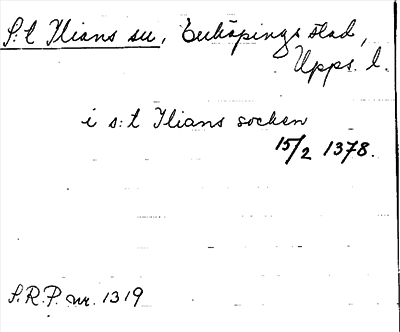 S:t Ilians sn, Enköpings stad,
Upps. l.
i s:t Ilians socken
15/2 1378.
S.R.P. nr. 1319